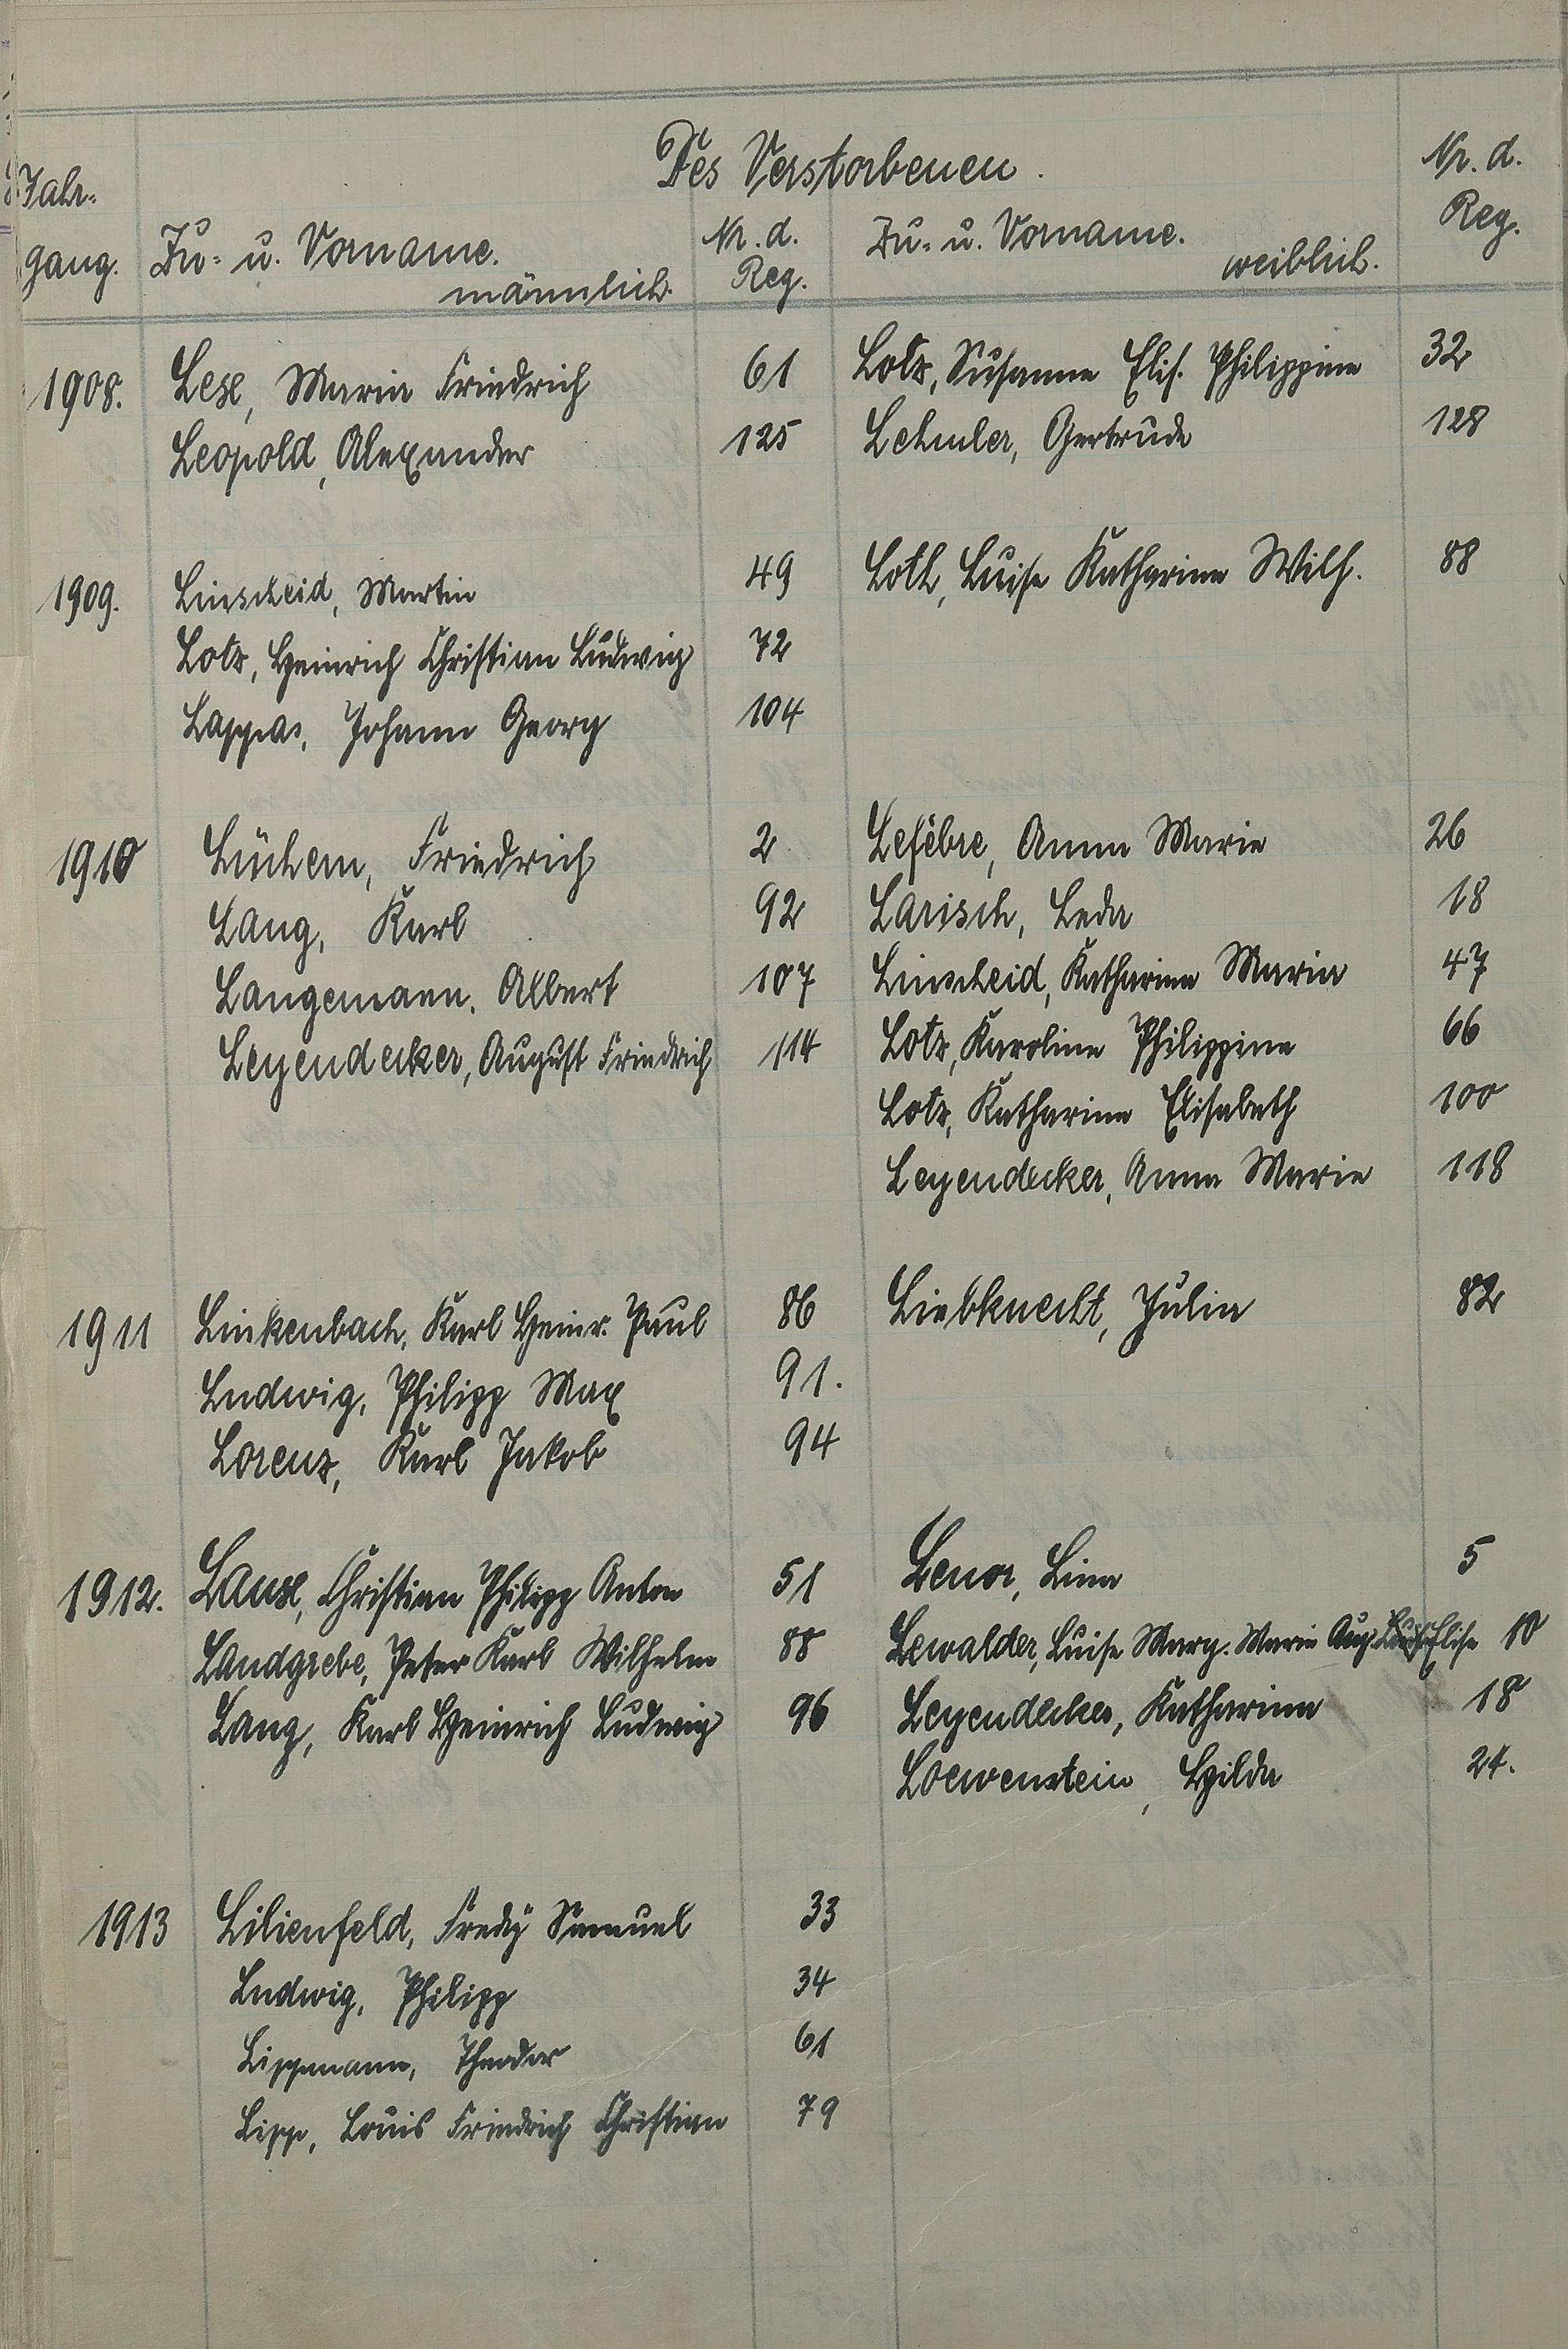 Des Verstorbenen.
Jahr- Nr. d.
gang. Zu- u. Vorname. männlich. Nr. d. Reg. Zu- u. Vorname. weiblich. Reg.
1908. Lese, Maria Friedrich 61 Lotz, Susanne Elis. Philippine 32
Leopold, Alexander 125 Lehmler, Gertrude 128
1909. Linscheid, Martin 49 Loth, Luise Katharine Wilh. 88
Lotz, Heinrich Christian Ludwig 72
Lappas, Johann Georg 104
1910 Lüchem, Friedrich 2 Lefébre, Anna Marie 26
Lang, Karl 92 Larisch, Leda 18
Langemann, Albert 107 Linscheid, Katharine Maria 47
Leyendecker, August Friedrich 114 Lotz, Karoline Philippine 66
Lotz, Katharine Elisabeth 100
Leyendecker, Anna Marie 118
1911 Linkenbach, Karl Heinr. Paul 86 Liebknecht, Julia 82
Ludwig, Philipp Max 91.
Lorenz, Karl Jakob 94
1912. Lause, Christian Philipp Anton 51 Lenor, Lina 5
Landgrebe, Peter Karl Wilhelm 88 Lewalder, Luise Marg. Marie Aug. Elise 10
Lang, Karl Heinrich Ludwig 96 Leyendecker, Katharina 18
Loewenstein, Hilda 24.
1913 Lilienfeld, Fredÿ Samuel 33
Ludwig, Philipp 34
Lippmann, Theodor 61
Lipp, Louis Friedrich Christian 79